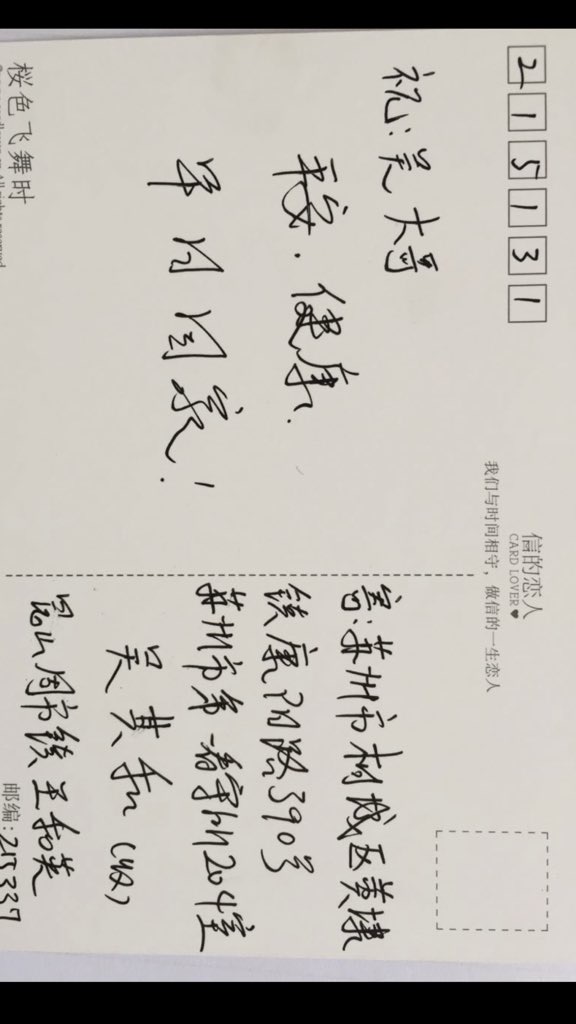 215131
祝:吴大哥
平安.健康.
早日回家!
信的恋人
CARD LOVER♥
我们与时间相守，做信的一生恋人
寄:苏州市相城区黄埭
镇康阳路390号
苏州市第一看守所204室
吴其和(收)
昆山周市镇 王和英
邮编:215337
桜色飞舞时